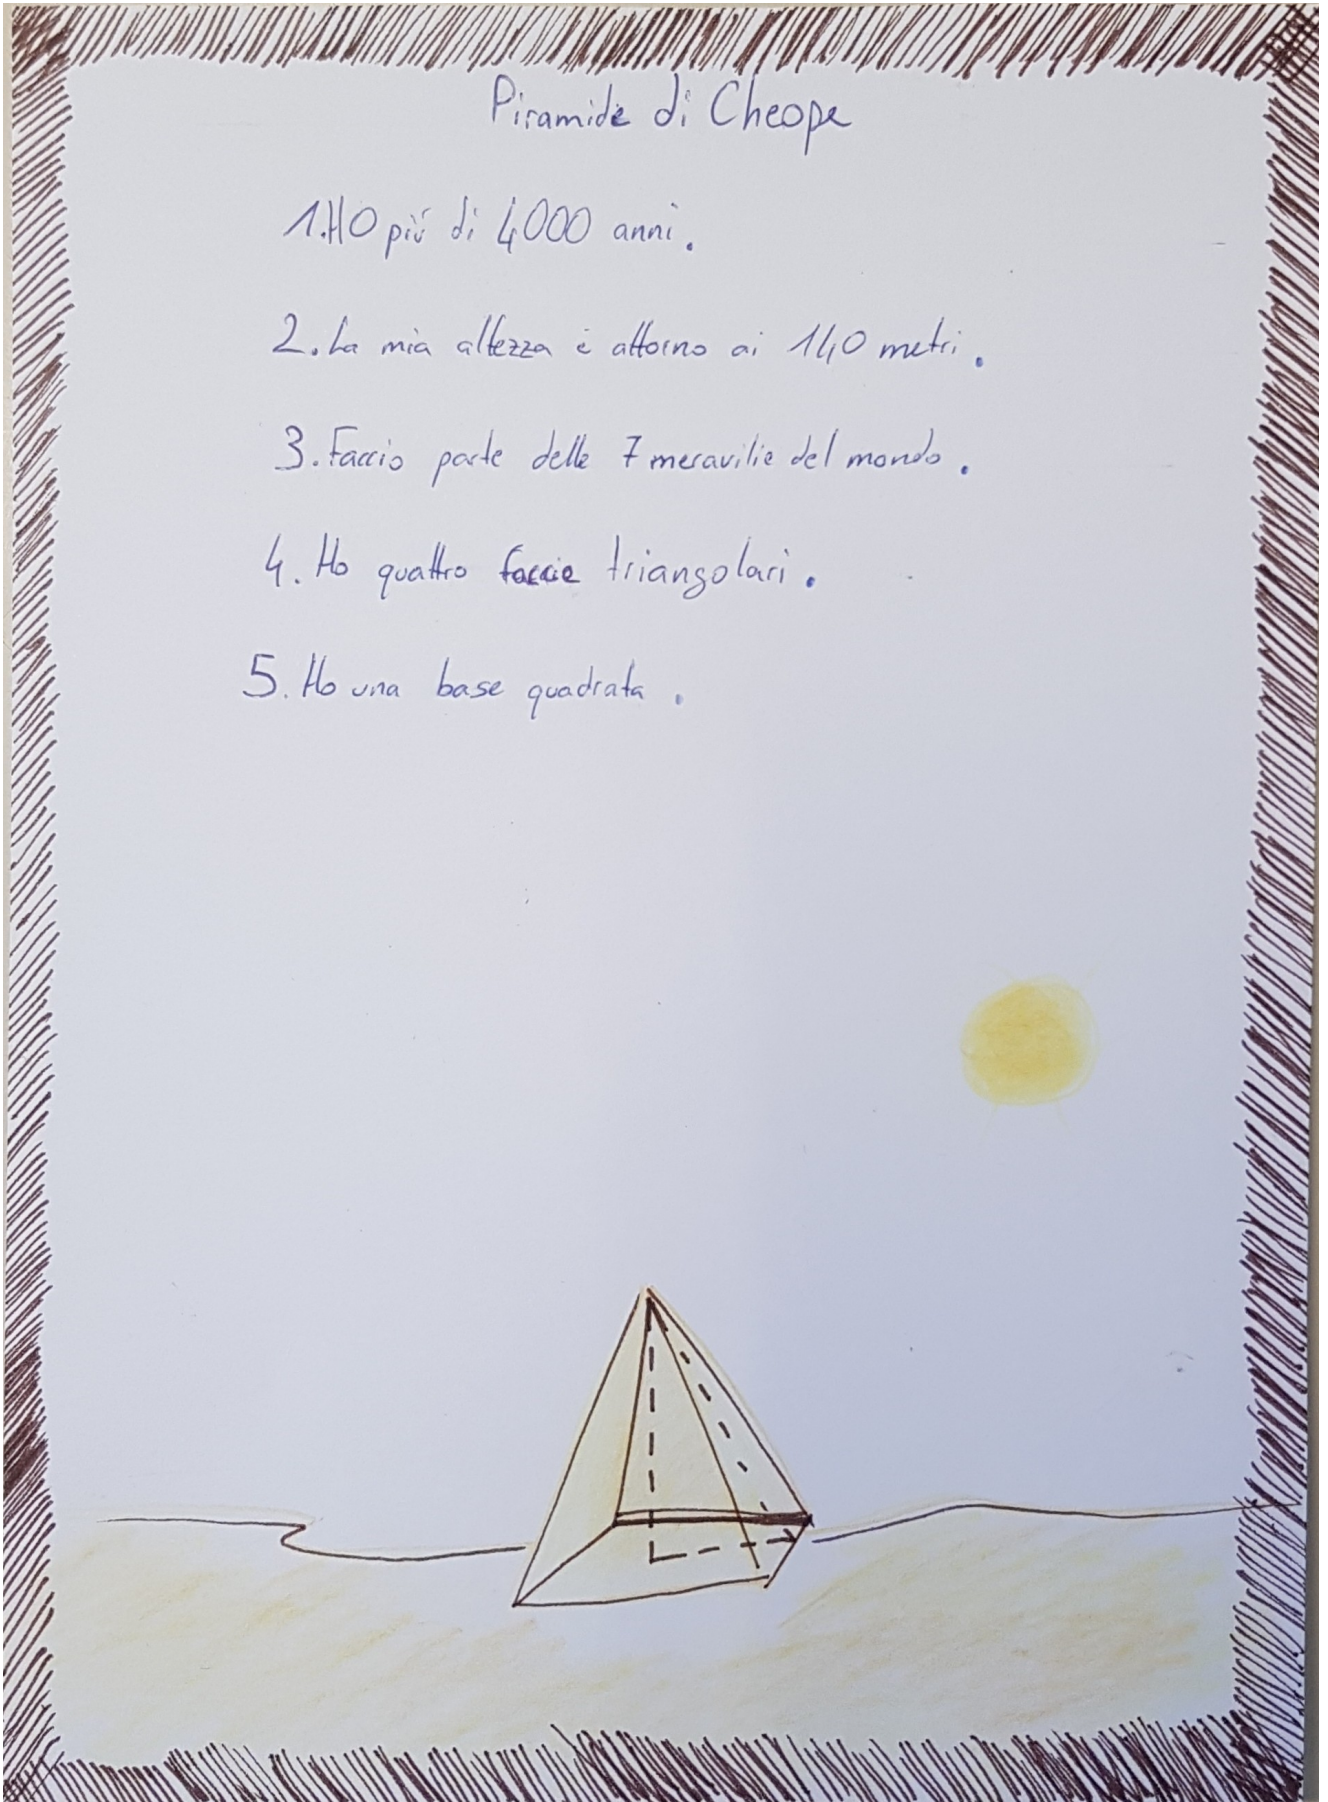 Piramide di Cheope
1. HO più di 4000 anni.
2. La mia altezza è attorno ai 140 metri.
3. Faccio parte delle 7 meravilie del mondo.
4. Ho quattro faccie triangolari.
5. Ho una base quadrata.